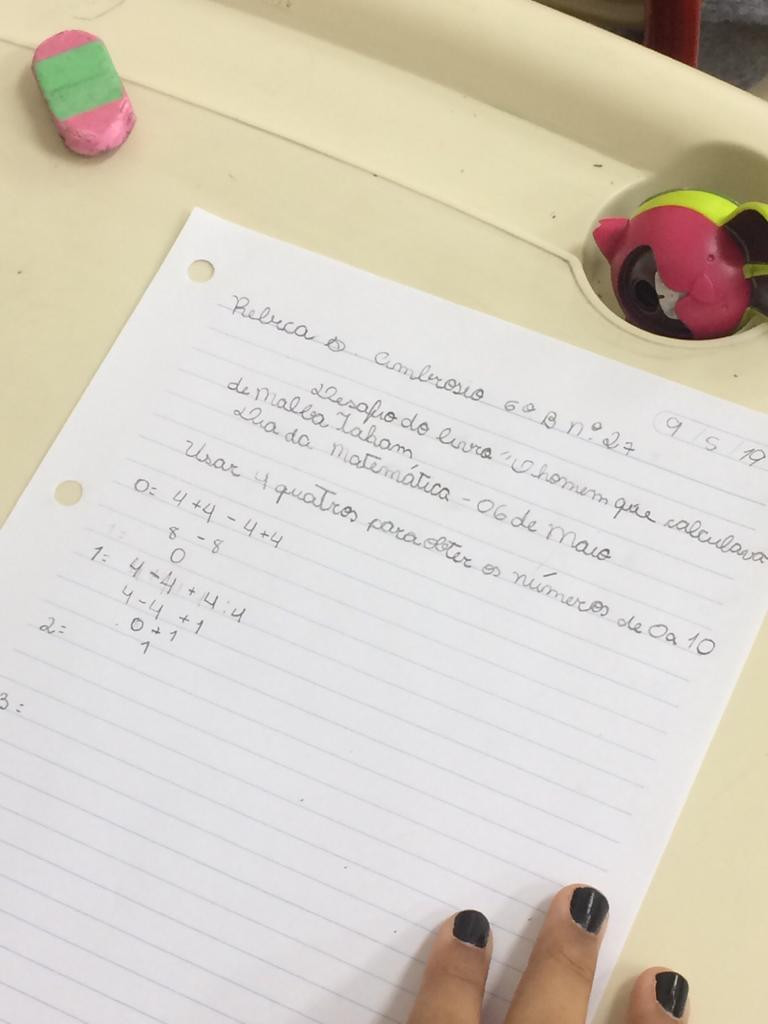 Rebeca S. Ambrosio 6º B nº 27
9/5/19
Desafio do livro "O homem que calculava
de Malba Taham
Dia da matemática - 06 de Maio
Usar 4 quatros para obter os números de 0 a 10
0= 4+4-4+4
8-8
0
1= 4-4+4:4
4-4 +1
0+1
1
2=
3=